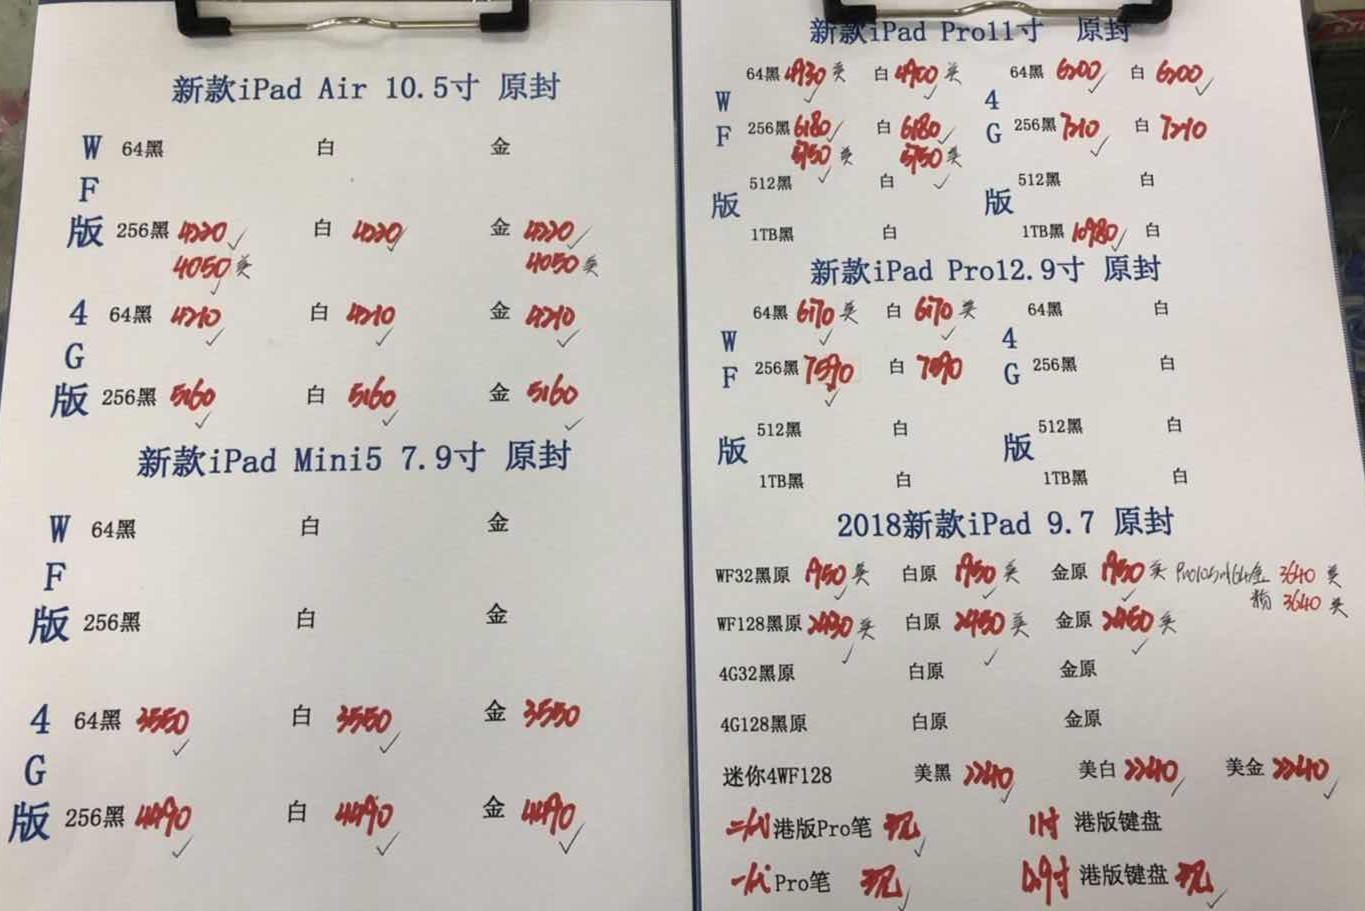 新款iPad Air 10.5寸 原封
WF版
64黑 白 金
256黑 4220 白 4220 金 4220
4050 美 4050 美
4G版
64黑 4210 白 4210 金 4210
256黑 5160 白 5160 金 5160
新款iPad Mini5 7.9寸 原封
WF版
64黑 白 金
256黑 白 金
4G版
64黑 3550 白 3550 金 3550
256黑 4490 白 4490 金 4490
新款iPad Pro11寸 原封
WF版
64黑 4930 美 白 4900 美
256黑 6180 白 6180
5750 美 5750 美
512黑 白
1TB黑 白
4G版
64黑 6200 白 6200
256黑 7210 白 7210
512黑 白
1TB黑 10980 白
新款iPad Pro12.9寸 原封
WF版
64黑 6170 美 白 6170 美
256黑 7590 白 7590
512黑 白
1TB黑 白
4G版
64黑 白
256黑 白
512黑 白
1TB黑 白
2018新款iPad 9.7 原封
WF32黑原 1950 美 白原 1950 美 金原 1950 美 3640 美
3640 美
WF128黑原 2430 美 白原 2450 美 金原 2450 美
4G32黑原 白原 金原
4G128黑原 白原 金原
迷你4WF128 美黑 2240 美白 2240 美金 2240
二代 港版Pro笔 现 11寸 港版键盘
一代 Pro笔 现 12.9寸 港版键盘 现